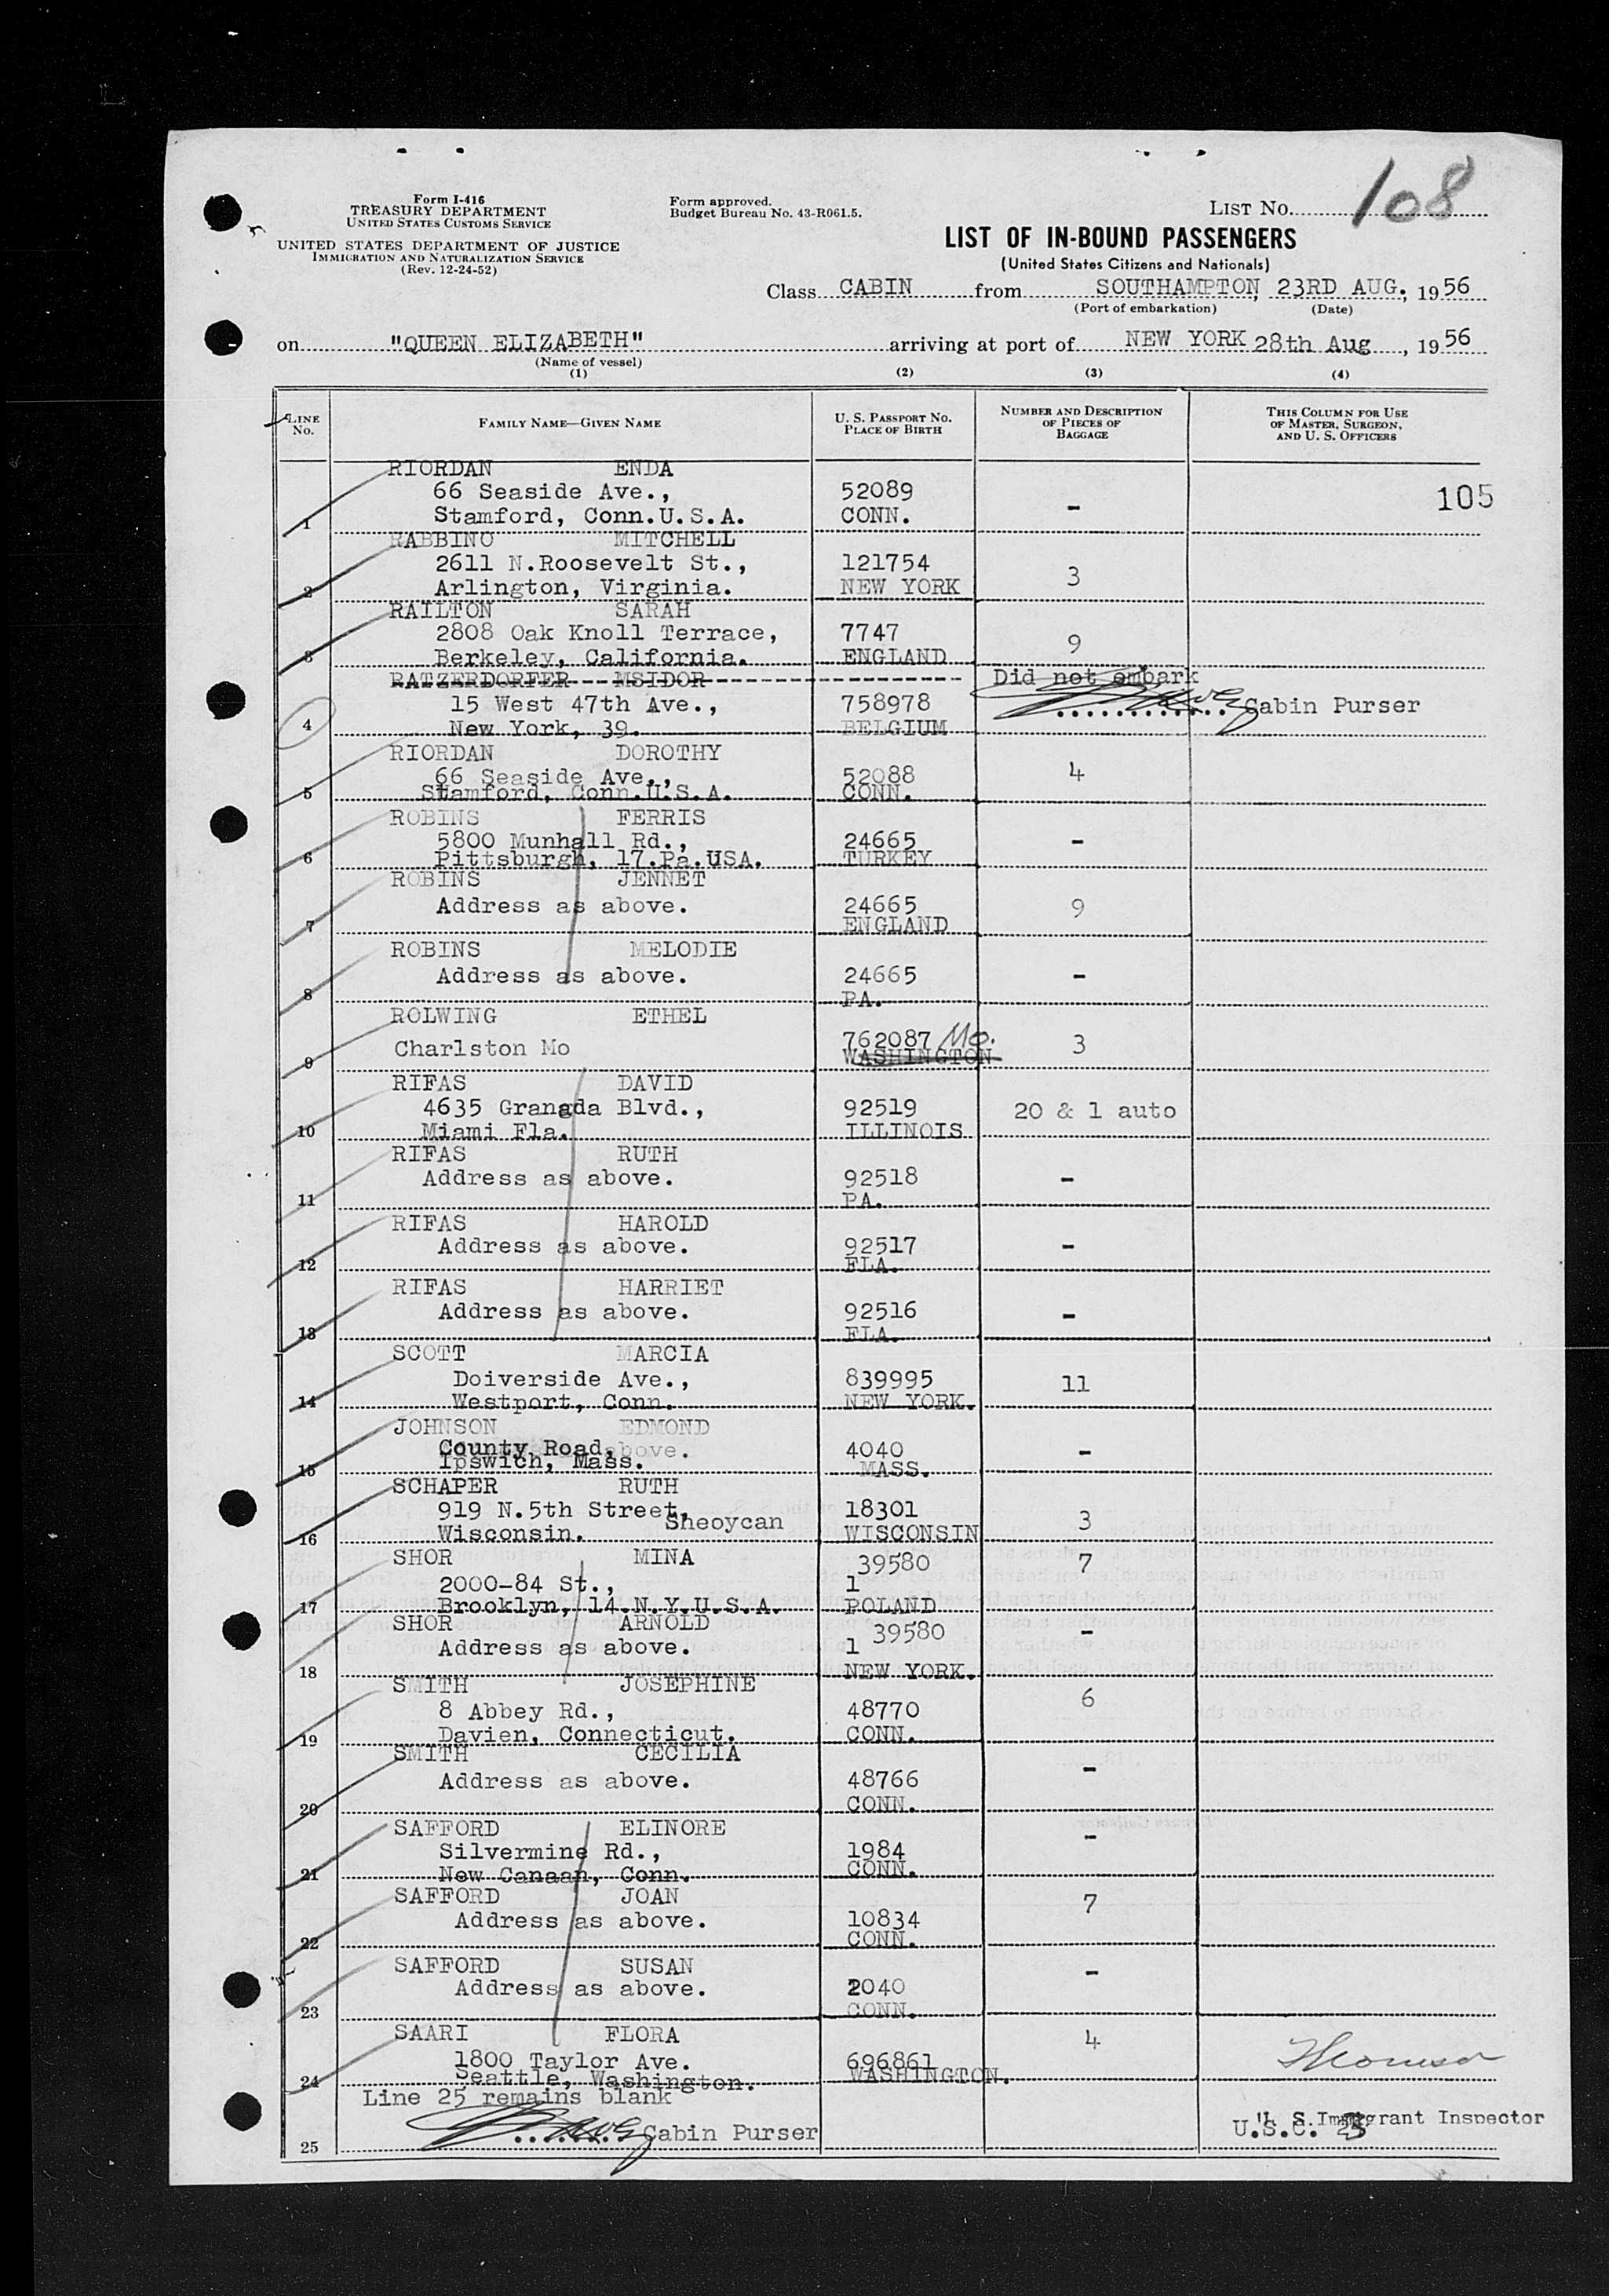 108
Form I-416
TREASURY DEPARTMENT
UNITED STATES CUSTOMS SERVICE
UNITED STATES DEPARTMENT OF JUSTICE
IMMIGRATION AND NATURALIZATION SERVICE
(Rev. 12-24-52)
Form approved.
Budget Bureau No. 43-R061.5.
LIST NO.
LIST OF IN-BOUND PASSENGERS
(United States Citizens and Nationals)
Class CABIN from SOUTHAMPTON, 23RD AUG., 1956
(Port of embarkation) (Date)
on "QUEEN ELIZABETH" arriving at port of NEW YORK 28th Aug, 1956
(Name of vessel)
(1) (2) (3) (4)
LINE NO. FAMILY NAME—GIVEN NAME U. S. PASSPORT NO. PLACE OF BIRTH NUMBER AND DESCRIPTION OF PIECES OF BAGGAGE THIS COLUMN FOR USE OF MASTER, SURGEON, AND U. S. OFFICERS
RIORDAN ENDA
66 Seaside Ave., 52089 - 105
1 Stamford, Conn.U.S.A. CONN.
RABBINO MITCHELL
2611 N.Roosevelt St., 121754 3
2 Arlington, Virginia. NEW YORK
RAILTON SARAH
2808 Oak Knoll Terrace, 7747 9
3 Berkeley, California. ENGLAND
RATZERDORFER MSIDOR Did not embark
15 West 47th Ave., 758978 Cabin Purser
4 New York, 39. BELGIUM
RIORDAN DOROTHY
66 Seaside Ave., 52088 4
5 Stamford, Conn.U.S.A. CONN.
ROBINS FERRIS
5800 Munhall Rd., 24665 -
6 Pittsburgh, 17.Pa.USA. TURKEY
ROBINS JENNET
Address as above. 24665 9
7 ENGLAND
ROBINS MELODIE
Address as above. 24665 -
8 PA.
ROLWING ETHEL
Charlston Mo 762087 Mo. 3
9 WASHINGTON
RIFAS DAVID
4635 Granada Blvd., 92519 20 & 1 auto
10 Miami Fla. ILLINOIS
RIFAS RUTH
Address as above. 92518 -
11 PA.
RIFAS HAROLD
Address as above. 92517 -
12 FLA.
RIFAS HARRIET
Address as above. 92516 -
13 FLA.
SCOTT MARCIA
Doiverside Ave., 839995 11
14 Westport, Conn. NEW YORK.
JOHNSON EDMOND
County Road, above. 4040 -
15 Ipswich, Mass. MASS.
SCHAPER RUTH
919 N.5th Street, 18301 3
16 Wisconsin. Sheoycan WISCONSIN
SHOR MINA 39580 7
2000-84 St., 1
17 Brooklyn, 14.N.Y.U.S.A. POLAND
SHOR ARNOLD 39580 -
Address as above. 1
18 NEW YORK.
SMITH JOSEPHINE 6
8 Abbey Rd., 48770
19 Davien, Connecticut. CONN.
SMITH CECILIA
Address as above. 48766 -
20 CONN.
SAFFORD ELINORE -
Silvermine Rd., 1984
21 New Canaan, Conn. CONN.
SAFFORD JOAN 7
Address as above. 10834
22 CONN.
SAFFORD SUSAN -
Address as above. 2040
23 CONN.
SAARI FLORA 4
1800 Taylor Ave. 696861
24 Seattle, Washington. WASHINGTON.
Line 25 remains blank
U. S. Immigrant Inspector
Cabin Purser U.S.C. 23
25